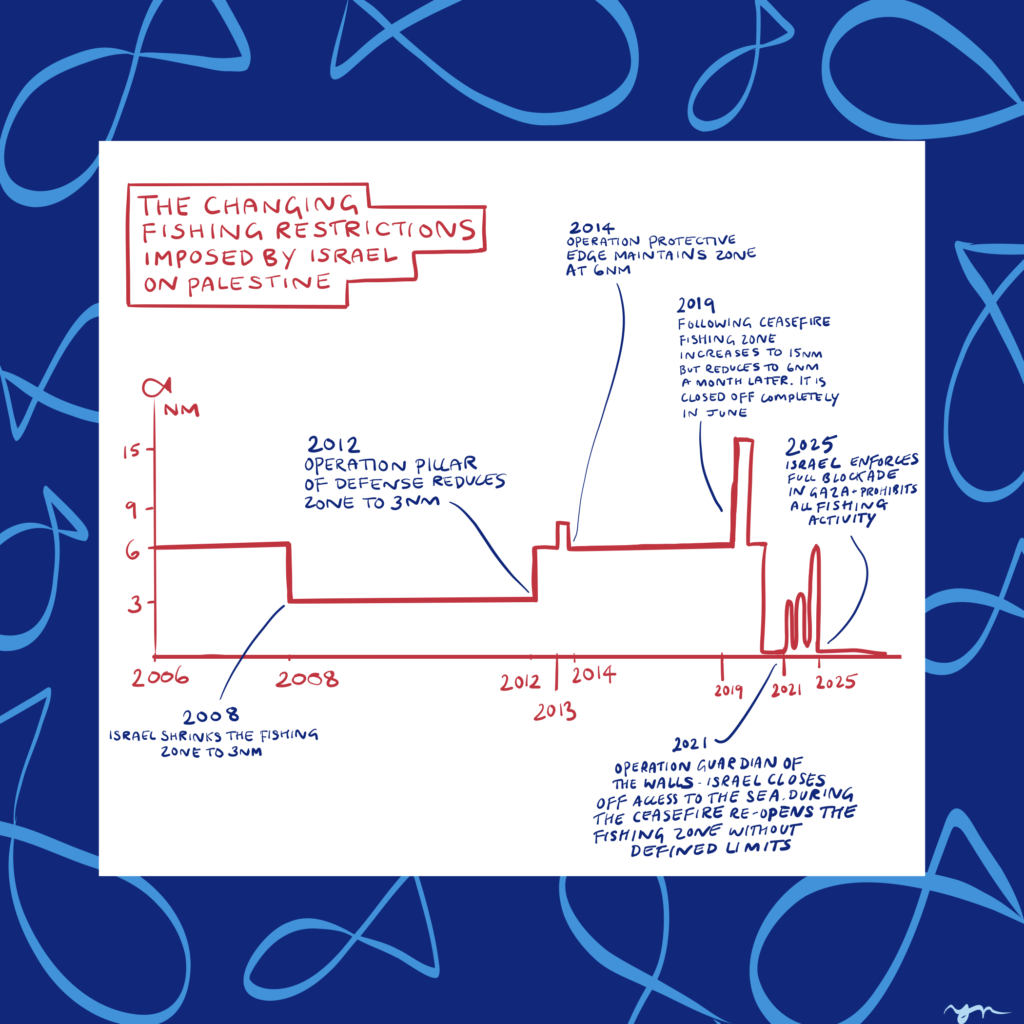 THE CHANGING
FISHING RESTRICTIONS
IMPOSED BY ISRAEL
ON PALESTINE
2014
OPERATION PROTECTIVE
EDGE MAINTAINS ZONE
AT 6NM
2019
FOLLOWING CEASEFIRE
FISHING ZONE
INCREASES TO 15NM
BUT REDUCES TO 6NM
A MONTH LATER. IT IS
CLOSED OFF COMPLETELY
IN JUNE
2012
OPERATION PILLAR
OF DEFENSE REDUCES
ZONE TO 3NM
2025
ISRAEL ENFORCES
FULL BLOCKADE
IN GAZA - PROHIBITS
ALL FISHING
ACTIVITY
NM
15
9
6
3
2006
2008
2012
2013
2014
2019
2021
2025
2008
ISRAEL SHRINKS THE FISHING
ZONE TO 3NM
2021
OPERATION GUARDIAN OF
THE WALLS - ISRAEL CLOSES
OFF ACCESS TO THE SEA. DURING
THE CEASEFIRE RE-OPENS THE
FISHING ZONE WITHOUT
DEFINED LIMITS